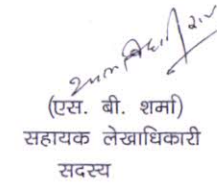 (एस. बी. शर्मा)
सहायक लेखाधिकारी
सदस्य